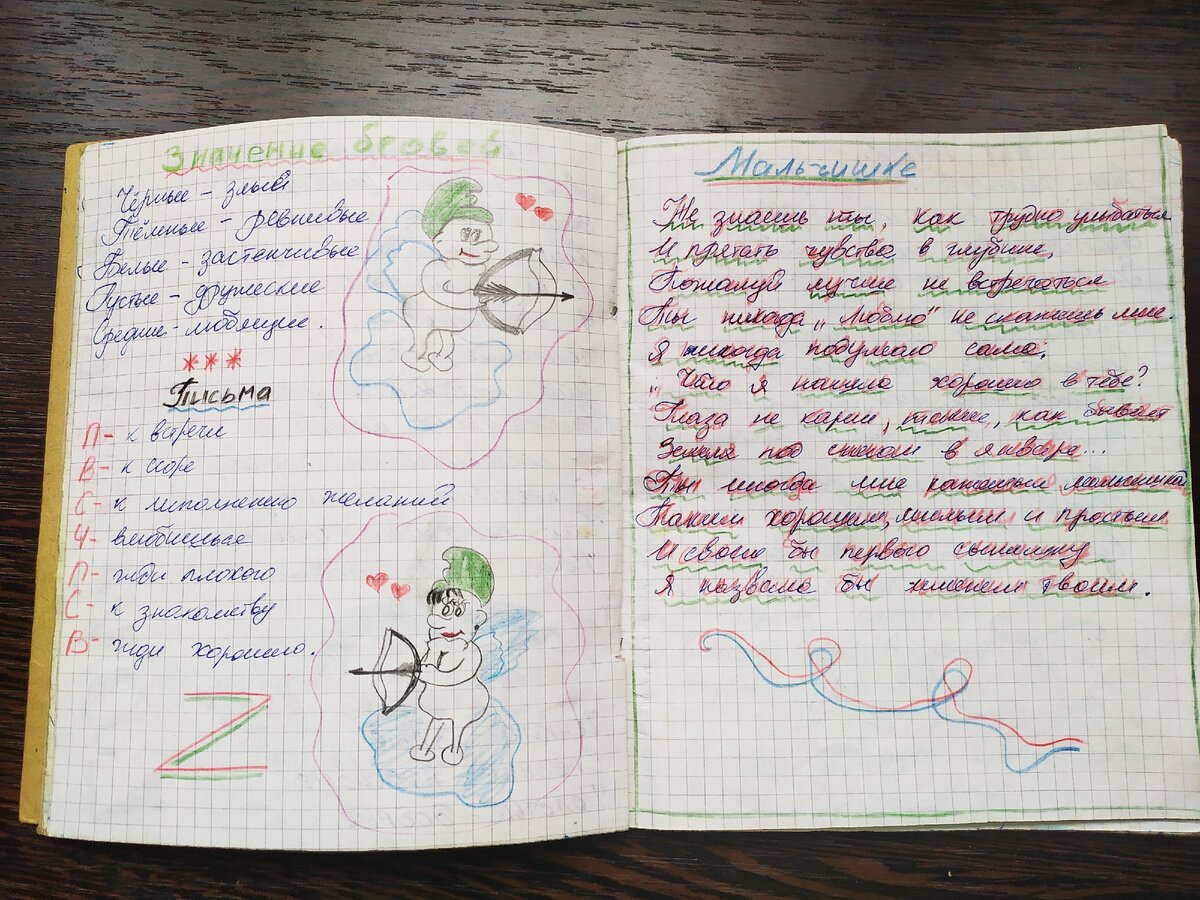 Значение бровей
Чёрные - злые
Тёмные - ревнивые
Белые - застенчивые
Густые - дружеские
Средние - любящие.
***
Письма
П - к встречи
В - к ссоре
С - к исполнению желаний
Ч - влюбишься
П - жди плохого
С - к знакомству
В - жди хорошего.
Z
Мальчишке
Не знаешь ты, как трудно улыбаться
И прятать чувство в глубине,
Пожалуй лучше не встречаться
Ты никогда „люблю" не скажешь мне
Я иногда подумаю сама,
„Что я нашла хорошего в тебе?
Глаза не карии, такие, как бывает
Земля под снегом в январе...
Ты иногда мне кажешься
Таким хорошим, милым и простым
И своего бы первого сынишку
Я назвала бы именем твоим.